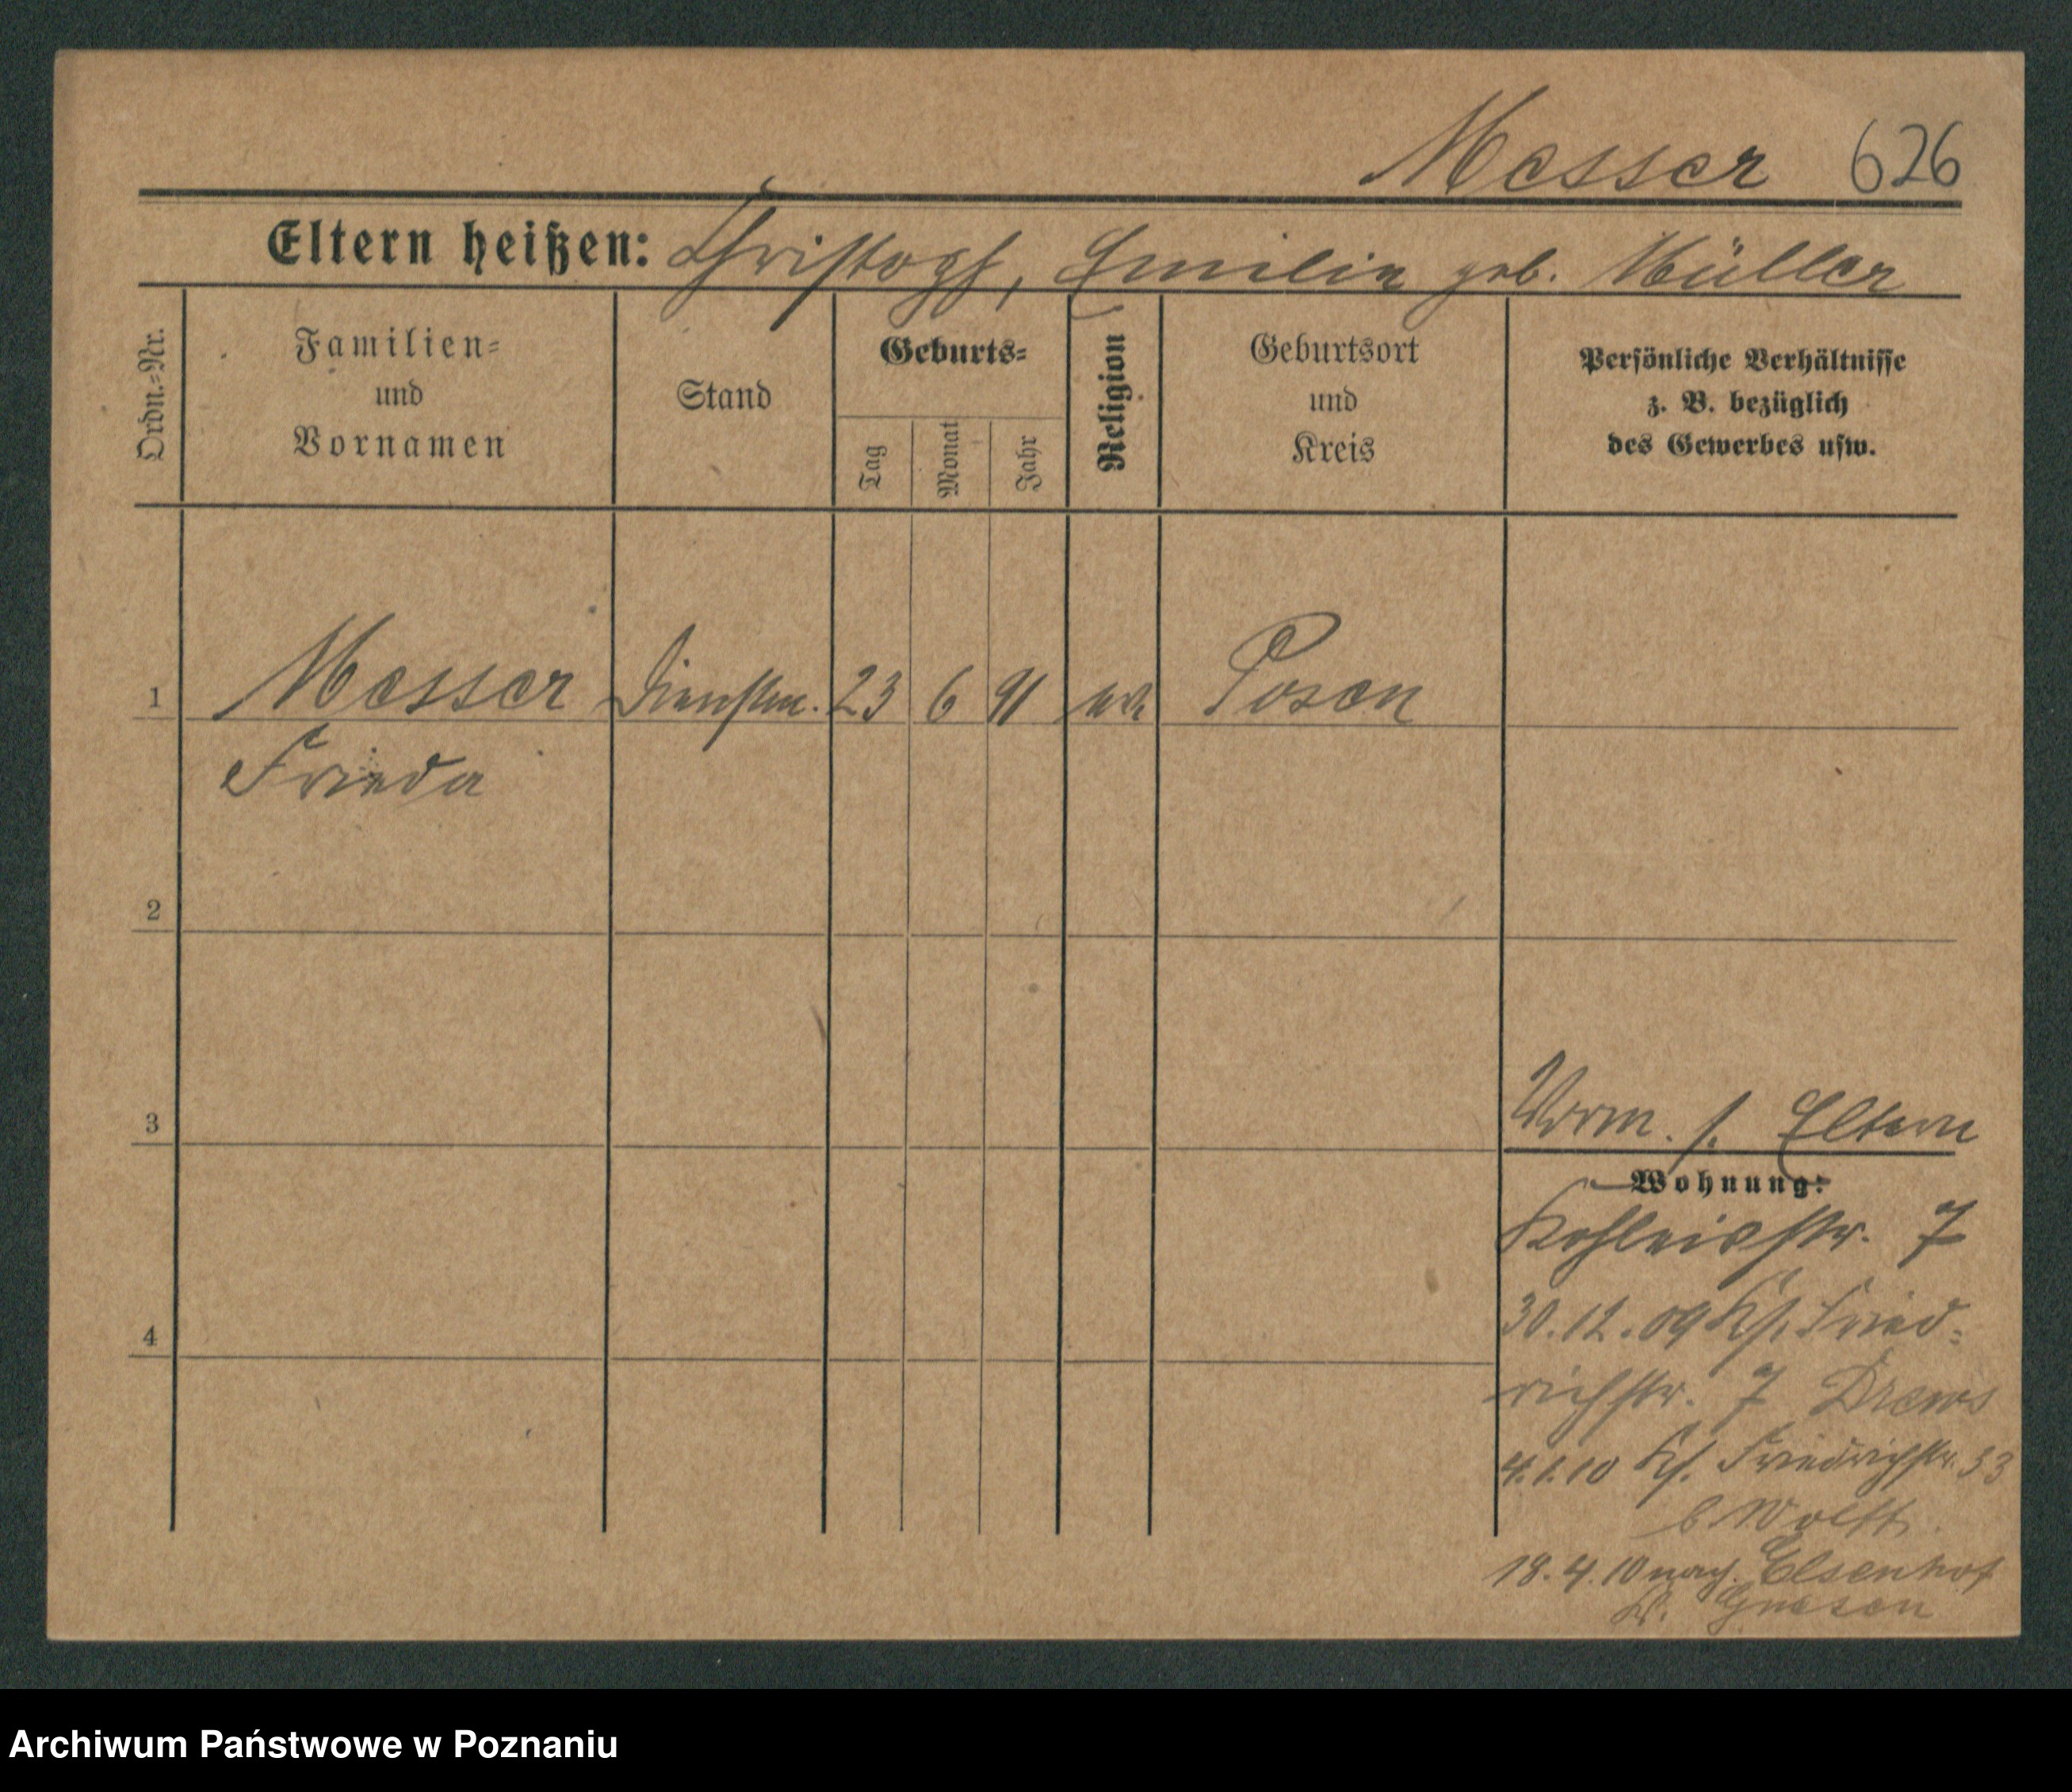 Messer 626
Eltern heißen: Christoph, Emilie geb. Müller
Ordn.=Nr.
Familien=
und
Vornamen
Stand
Geburts=
Tag
Monat
Jahr
Religion
Geburtsort
und
Kreis
Persönliche Verhältnisse
z. B. bezüglich
des Gewerbes usw.
1 Messer Dienstm. 23 6 91 ev. Posen
Frieda
2
3
4
Vorm. s. Eltern
Wohnung:
Kohleisstr. 7
30.12.09 Fried=
richstr. 7 Drews
4.1.10 Friedrichstr. 33
b Wolff.
18.4.10 nach Elsenhof
Kr. Gnesen
Archiwum Państwowe w Poznaniu